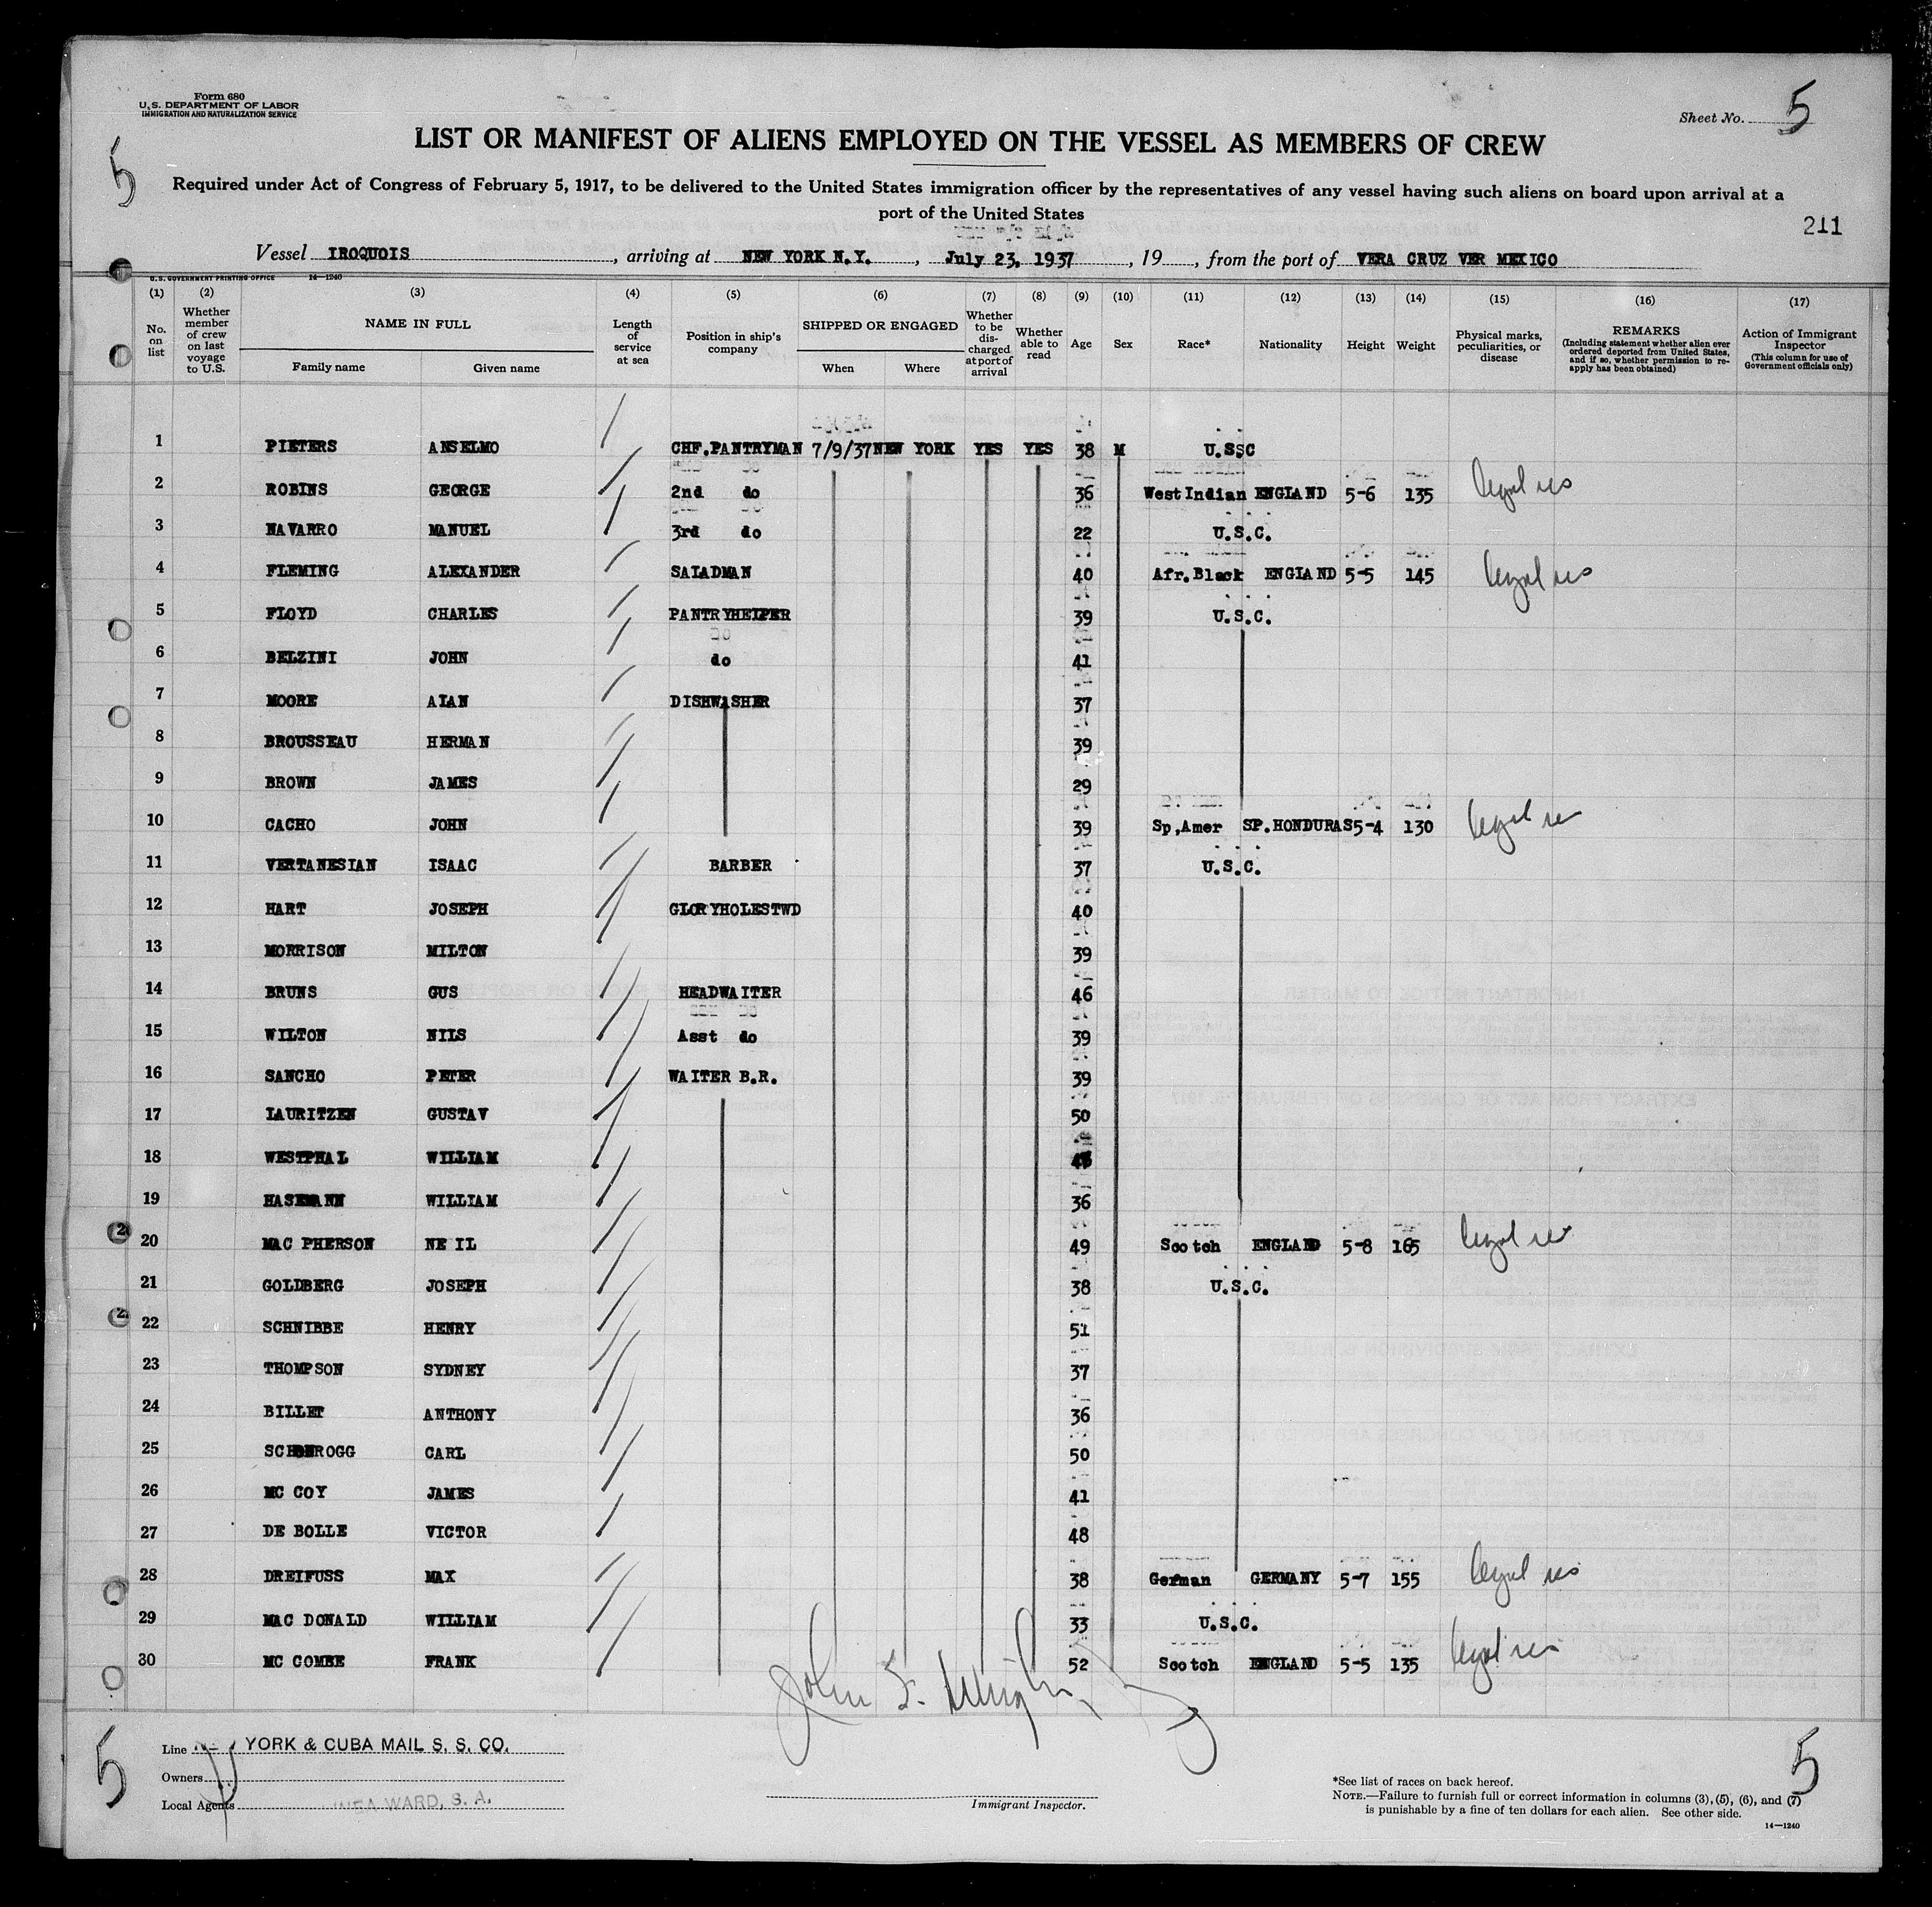 Form 680
U. S. DEPARTMENT OF LABOR
IMMIGRATION AND NATURALIZATION SERVICE
Sheet No. 5
5
LIST OR MANIFEST OF ALIENS EMPLOYED ON THE VESSEL AS MEMBERS OF CREW
Required under Act of Congress of February 5, 1917, to be delivered to the United States immigration officer by the representatives of any vessel having such aliens on board upon arrival at a
port of the United States
211
Vessel IROQUOIS, arriving at NEW YORK N.Y., July 23, 1937, 19, from the port of VERA CRUZ VER MEXICO
U. S. GOVERNMENT PRINTING OFFICE 14—1240
(1) (2) (3) (4) (5) (6) (7) (8) (9) (10) (11) (12) (13) (14) (15) (16) (17)
No. on list
Whether member of crew on last voyage to U.S.
NAME IN FULL
Family name Given name
Length of service at sea
Position in ship's company
SHIPPED OR ENGAGED
When Where
Whether to be discharged at port of arrival
Whether able to read
Age
Sex
Race*
Nationality
Height
Weight
Physical marks, peculiarities, or disease
REMARKS
(Including statement whether alien ever ordered deported from United States, and if so, whether permission to reapply has been obtained)
Action of Immigrant Inspector
(This column for use of Government officials only)
1 PIETERS ANSELMO CHF.PANTRYMAN 7/9/37 NEW YORK YES YES 38 M U.SSC
2 ROBINS GEORGE 2nd do 36 West Indian ENGLAND 5-6 135 legal res
3 NAVARRO MANUEL 3rd do 22 U.S.C.
4 FLEMING ALEXANDER SALADMAN 40 Afr.Black ENGLAND 5-5 145 legal res
5 FLOYD CHARLES PANTRYHELPER 39 U.S.C.
6 BELZINI JOHN do 41
7 MOORE ALAN DISHWASHER 37
8 BROUSSEAU HERMAN 39
9 BROWN JAMES 29
10 CACHO JOHN 39 Sp,Amer SP.HONDURAS 5-4 130 legal re
11 VERTANESIAN ISAAC BARBER 37 U.S.C.
12 HART JOSEPH GLORYHOLESTWD 40
13 MORRISON MILTON 39
14 BRUNS GUS HEADWAITER 46
15 WILTON NILS Asst do 39
16 SANCHO PETER WAITER B.R. 39
17 LAURITZEN GUSTAV 50
18 WESTPHAL WILLIAM
19 HASEMANN WILLIAM 36
20 MAC PHERSON NEIL 49 Scotch ENGLAND 5-8 165 legal res
21 GOLDBERG JOSEPH 38 U.S.C.
22 SCHNIBBE HENRY 51
23 THOMPSON SYDNEY 37
24 BILLET ANTHONY 36
25 CARL 50
26 MC COY JAMES 41
27 DE BOLLE VICTOR 48
28 DREIFUSS MAX 38 German GERMANY 5-7 155 legal res
29 MAC DONALD WILLIAM 33 U.S.C.
30 MC COMBE FRANK 52 Scotch ENGLAND 5-5 135 legal res
John F.
5
Line YORK & CUBA MAIL S. S. CO.
Owners
Local Agents WARD, S. A.
Immigrant Inspector.
*See list of races on back hereof.
NOTE.—Failure to furnish full or correct information in columns (3), (5), (6), and (7)
is punishable by a fine of ten dollars for each alien. See other side.
14—1240
5